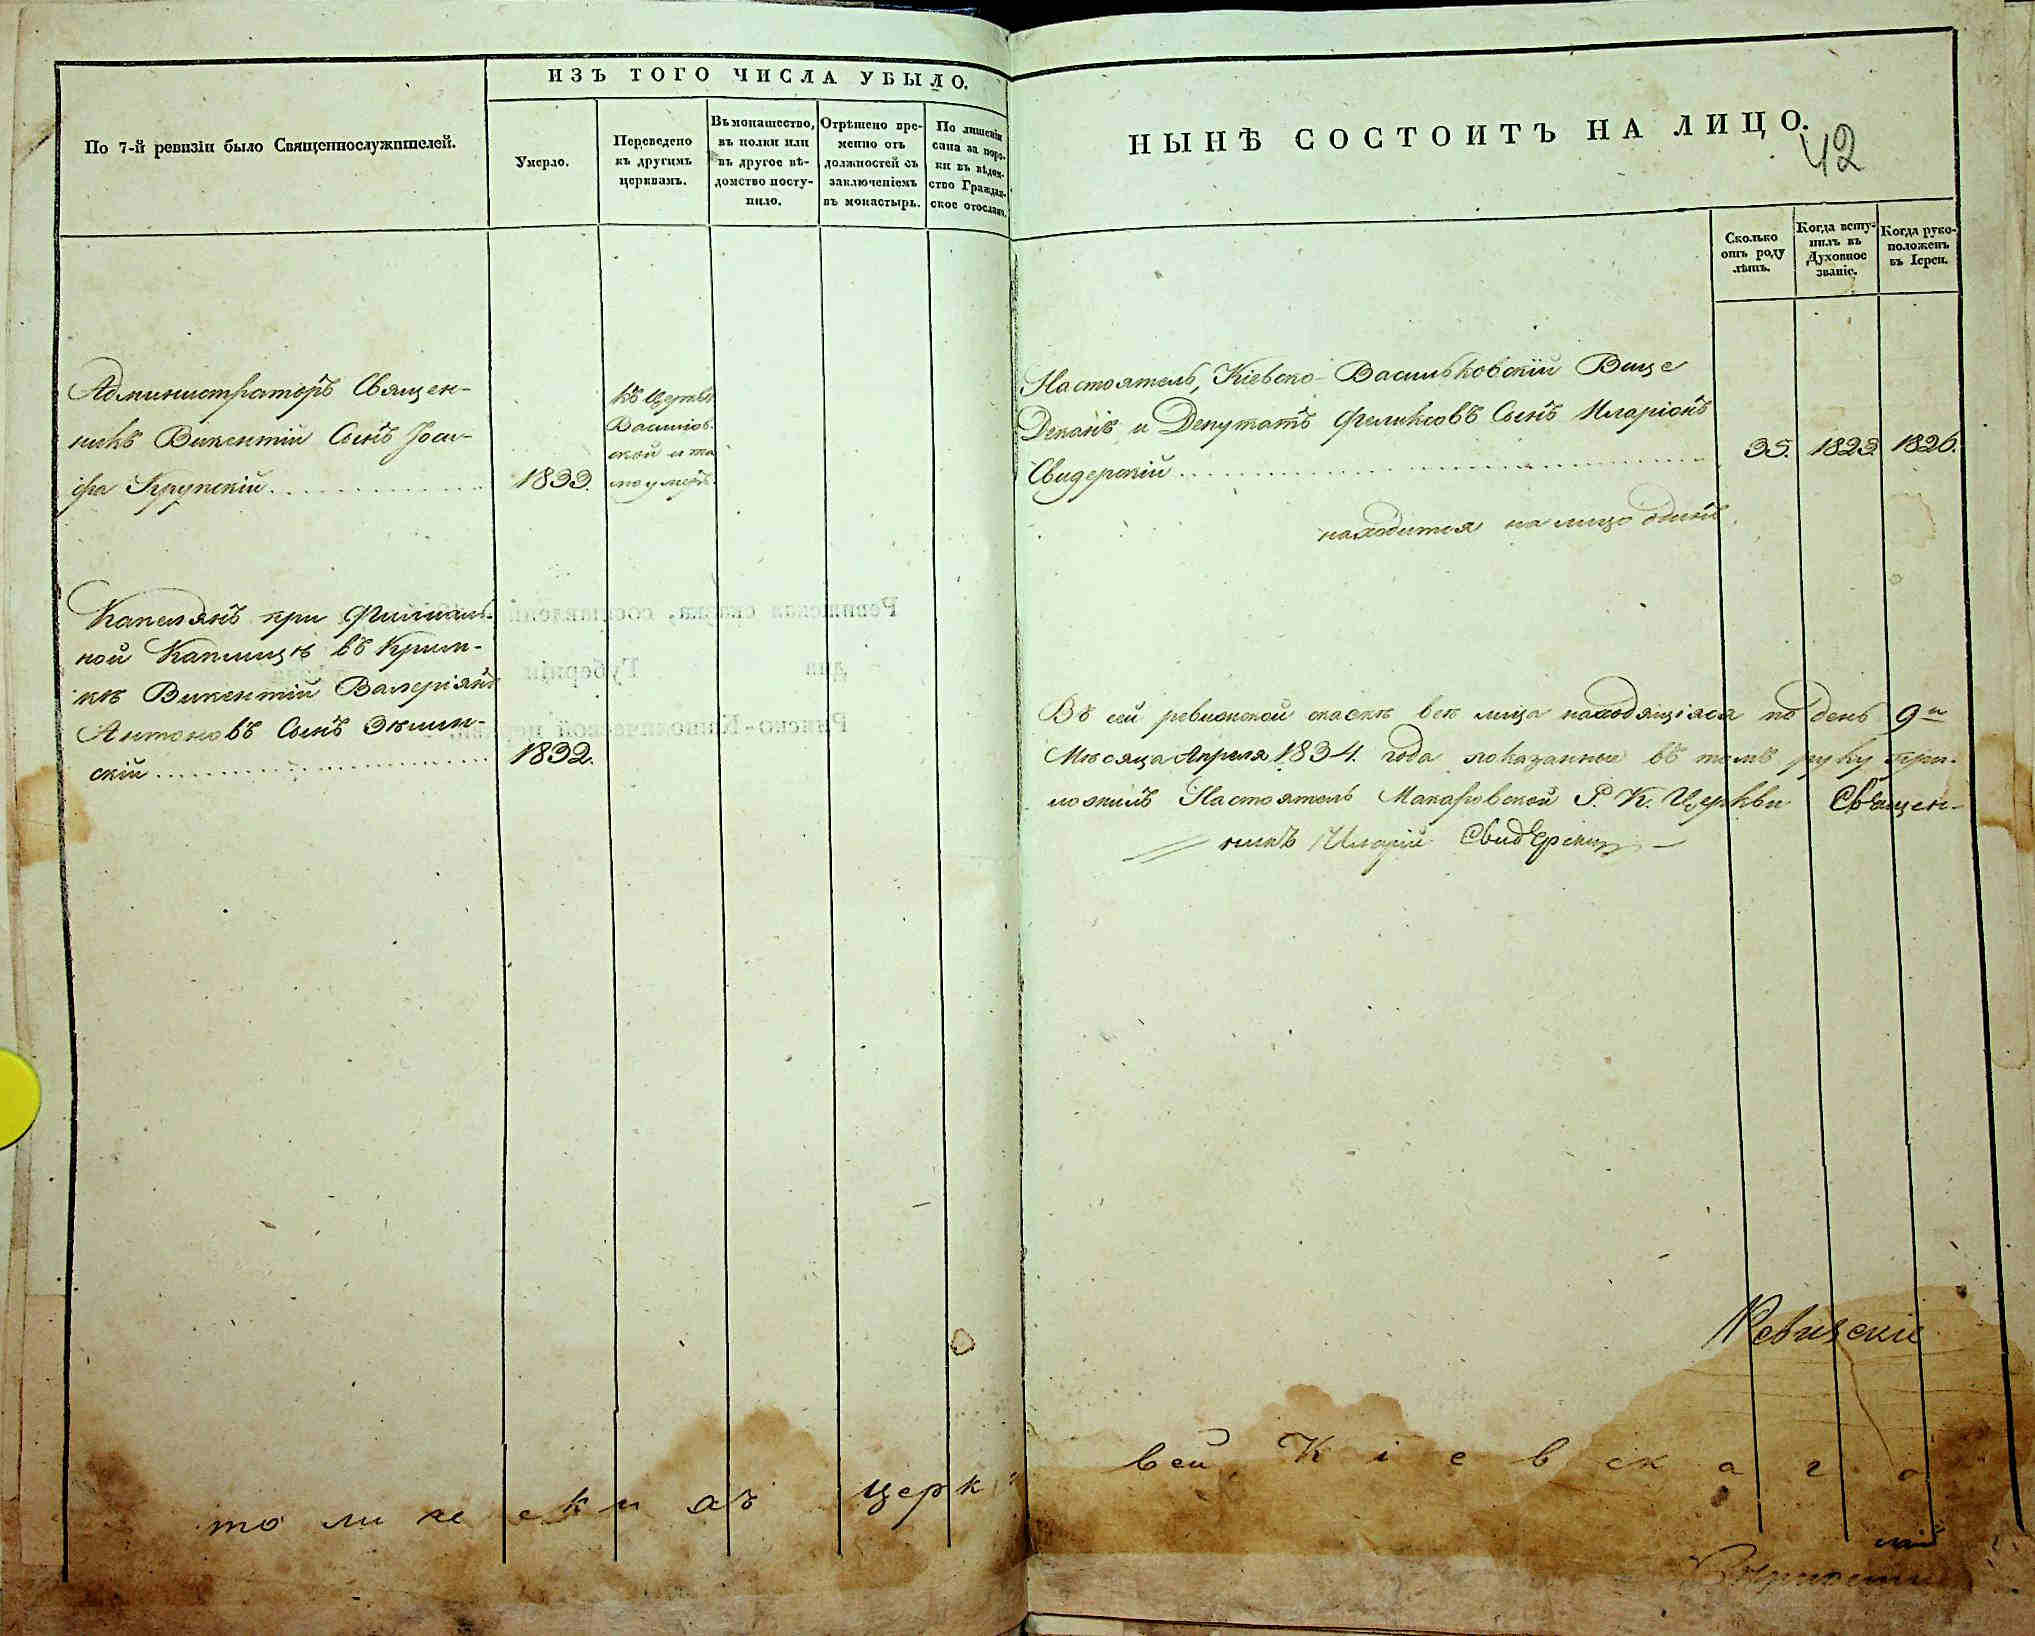 По 7-й ревизіи было Священнослужителей.
ИЗЪ ТОГО ЧИСЛА УБЫЛО.
Умерло.
Переведено
къ другимъ
церквамъ.
Въ монашество,
въ полки или
въ другое вѣ-
домство посту-
пило.
Отрѣшено вре-
менно отъ
должностей съ
заключеніемъ
въ монастырь.
По лишеніи
сана за поро-
ки въ вѣдом-
ство Граждан-
ское отослано.
Администраторъ Священ-
никъ Викентій Сынъ Іоси-
фа Крупскій
1833.
къ Церкви
Васильков.
ской и та
мо умеръ.
Капелянъ при Филиаль-
ной Каплицѣ въ Крим-
кѣ Викентій Валеріянъ
Антоновъ Сынъ
скій
1832.
то ли че ски хъ церк
НЫНѢ СОСТОИТЪ НА ЛИЦО.
42
Сколько
отъ роду
лѣтъ.
Когда всту-
пилъ въ
Духовное
званіе.
Когда руко-
положенъ
въ Іереи.
Настоятель, Кіевско-Васильковскій Вице
Деканъ и Депутатъ Феликсовъ Сынъ Иларіонъ
Свидерскій
35. 1823 1826.
находится на лицо одинъ.
Въ сей ревизской сказкѣ всѣ лица находящіяся по день 9го
Мѣсяца Апреля 1834. года показанные въ томъ руку при-
ложилъ Настоятель Макаровской Р. К. Церкви Священ-
никъ Иларій Свидерскій
вей Кіевскаго